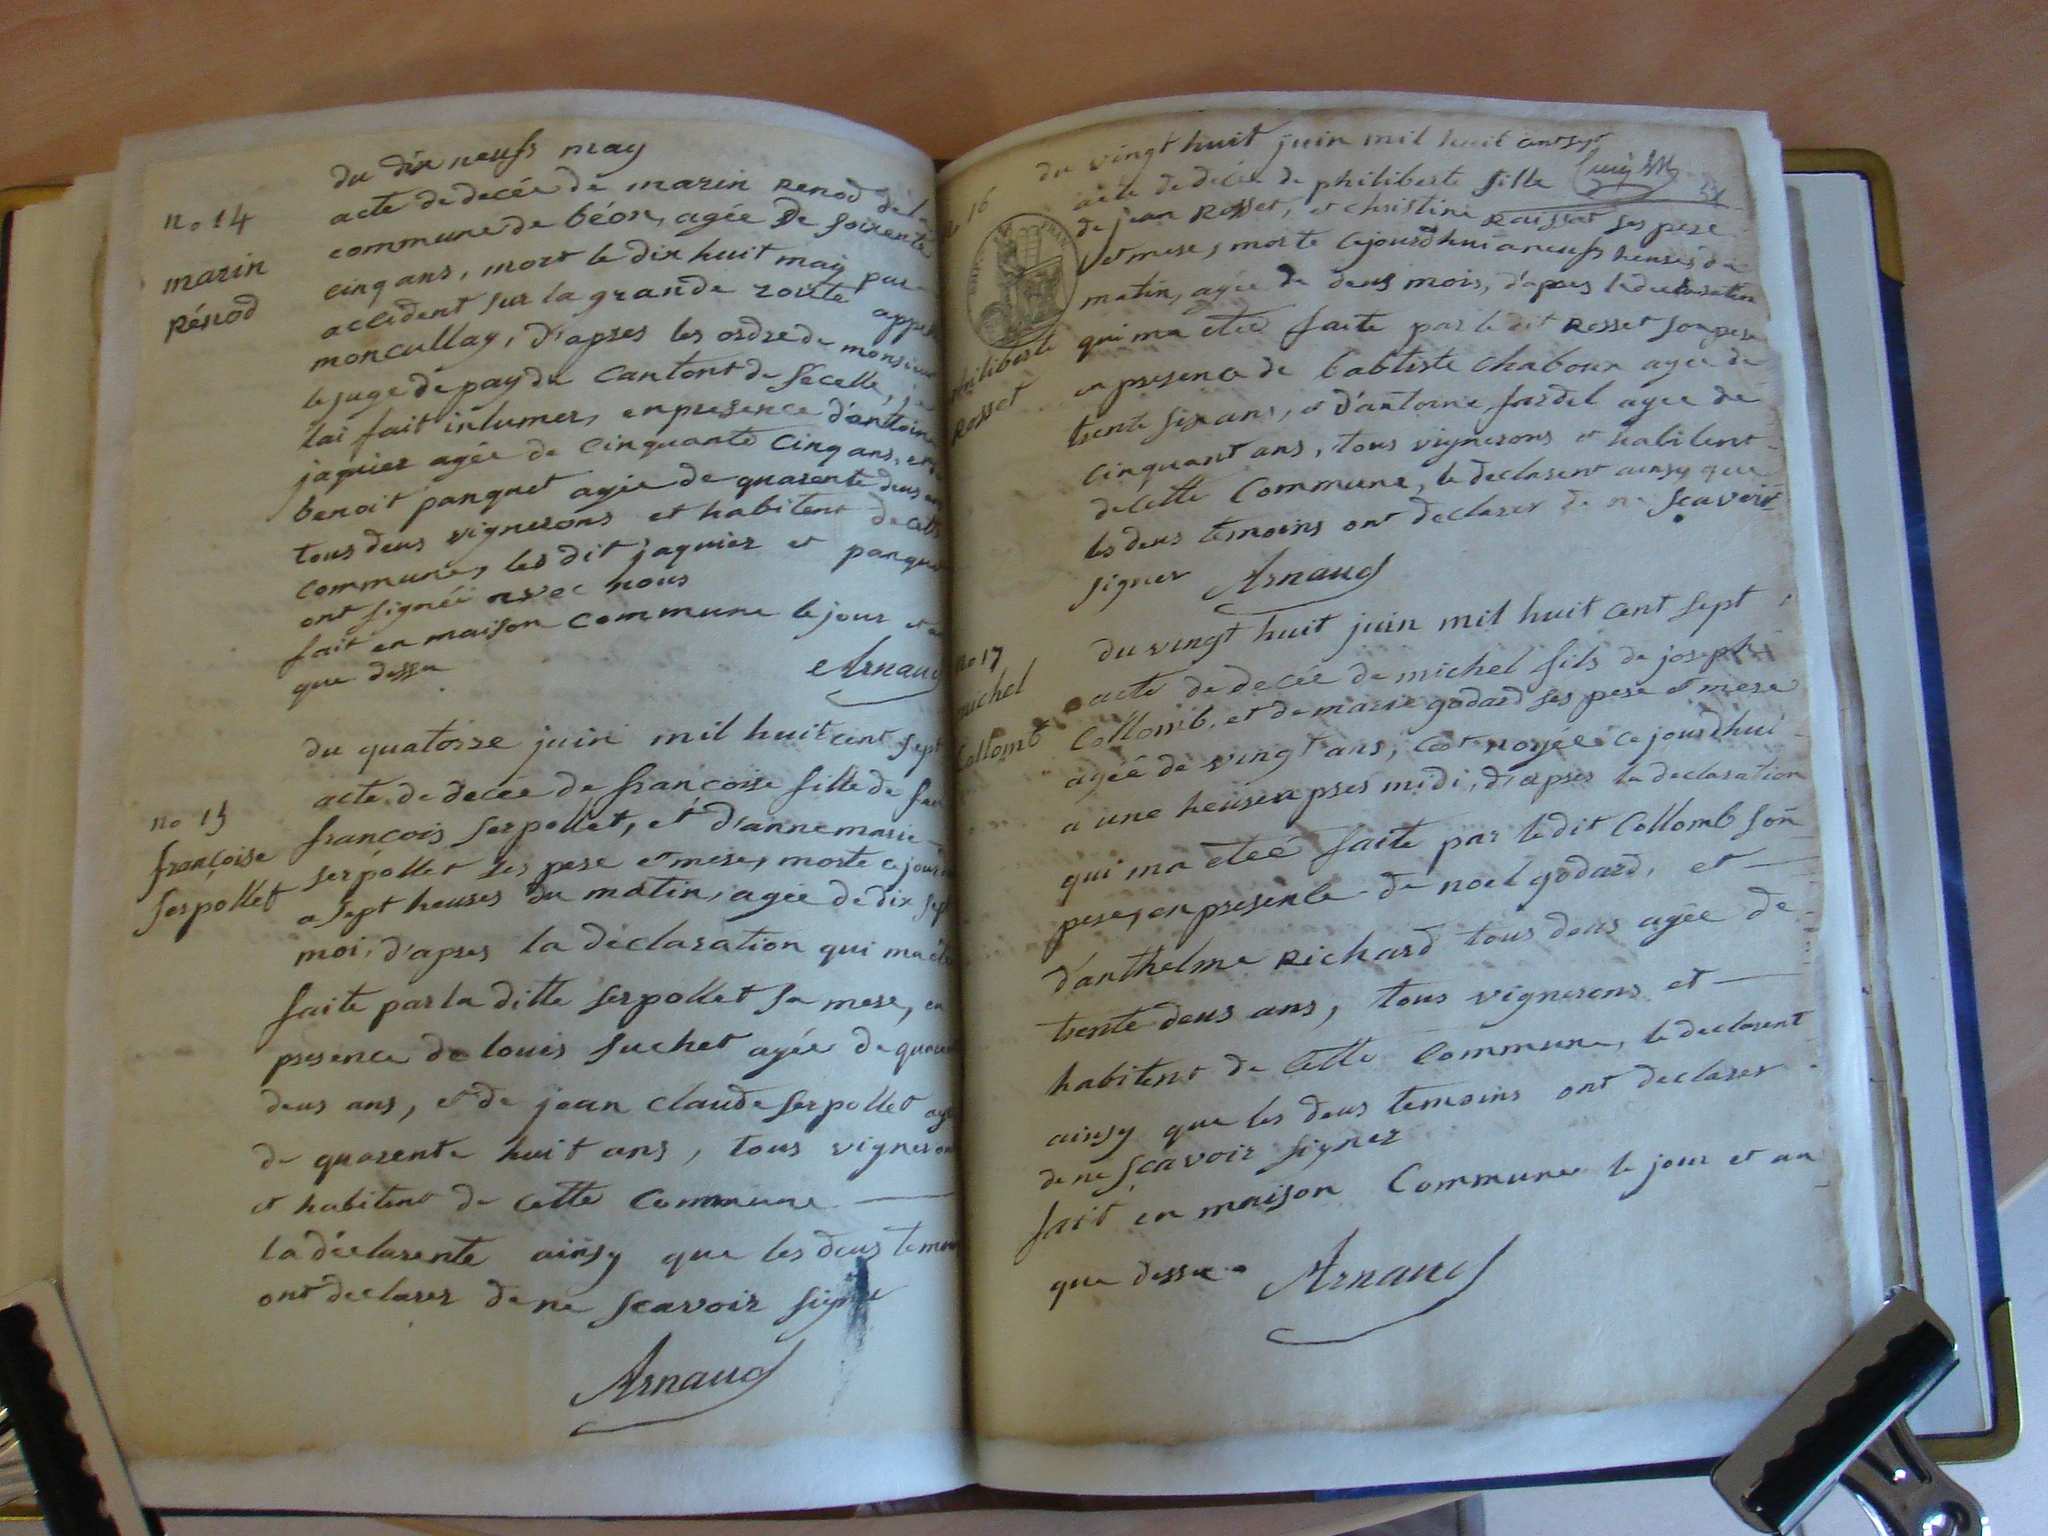 du dix neufs may
no 14
marin
Rénod
acte de decée de marin Renod de la
commune de béon, agée de soixente
cinq ans, mort le dix huit may par
accident sur la grande route appel
moncullay, d'apres les ordre de monsieur
le juge de pay du Cantont de sécelle, je
lai fait inlumer, en presence d'antoine
jaquier agée de cinquante cinq ans, et de
benoit panquet agée de quarente deus ans
tous deus vignerons et habitent de cette
commune, les dit jaquier et panquet
ont signée avec nous
fait en maison commune le jour et an
que dessu
Arnaud
du quatorze juin mil huit cent sept
no 15
françoise
serpollet
acte de decée de françoise fille de feu
françois serpollet, et d'anne marie
serpollet ses pere et mere, morte ce jour
a sept heures du matin, agée de dix sept
moi, d'apres la declaration qui ma été
faite par la ditte serpollet sa mere, en
presence de louis suchet agée de quarente
deus ans, et de jean claude serpollet agée
de quarente huit ans, tous vignerons
et habitent de cette commune
la déclarente ainsy que les deus temoins
ont declarer de ne scavoir signer
Arnaud
du vingt huit juin mil huit cent sept
no 16
philiberte
Rosset
acte de decée de philiberte fille
de jean Rosset, et christine Raisset ses pere
et mere, morte cejourdhui a neufs heures du
matin, agée de deus mois, d'apres la declaration
qui ma etée faite par le dit Rosset son pere
en presence de babtiste chaboux agée de
trente six ans, et d'antoine fardel agée de
cinquant ans, tous vignerons et habitent
de cette Commune, le declarent ainsy que
les deus temoins ont declarer de ne scavoir
signer Arnaud
du vingt huit juin mil huit cent sept
no 17
michel
Collomb
acte de decée de michel fils de joseph
Collomb, et de marie godard ses pere et mere
agée de vingt ans, cest noyée ce jourdhui
a une heure apres midi, d'apres la declaration
qui ma etée faite par ledit Collomb son
pere, en presence de noel godard, et
d'anthelme Richard tous deus agée de
trente deus ans, tous vignerons et
habitent de cette Commune, le declarent
ainsy que les deus temoins ont declarer
de ne scavoir signer
fait en maison Commune le jour et an
que dessu Arnaud